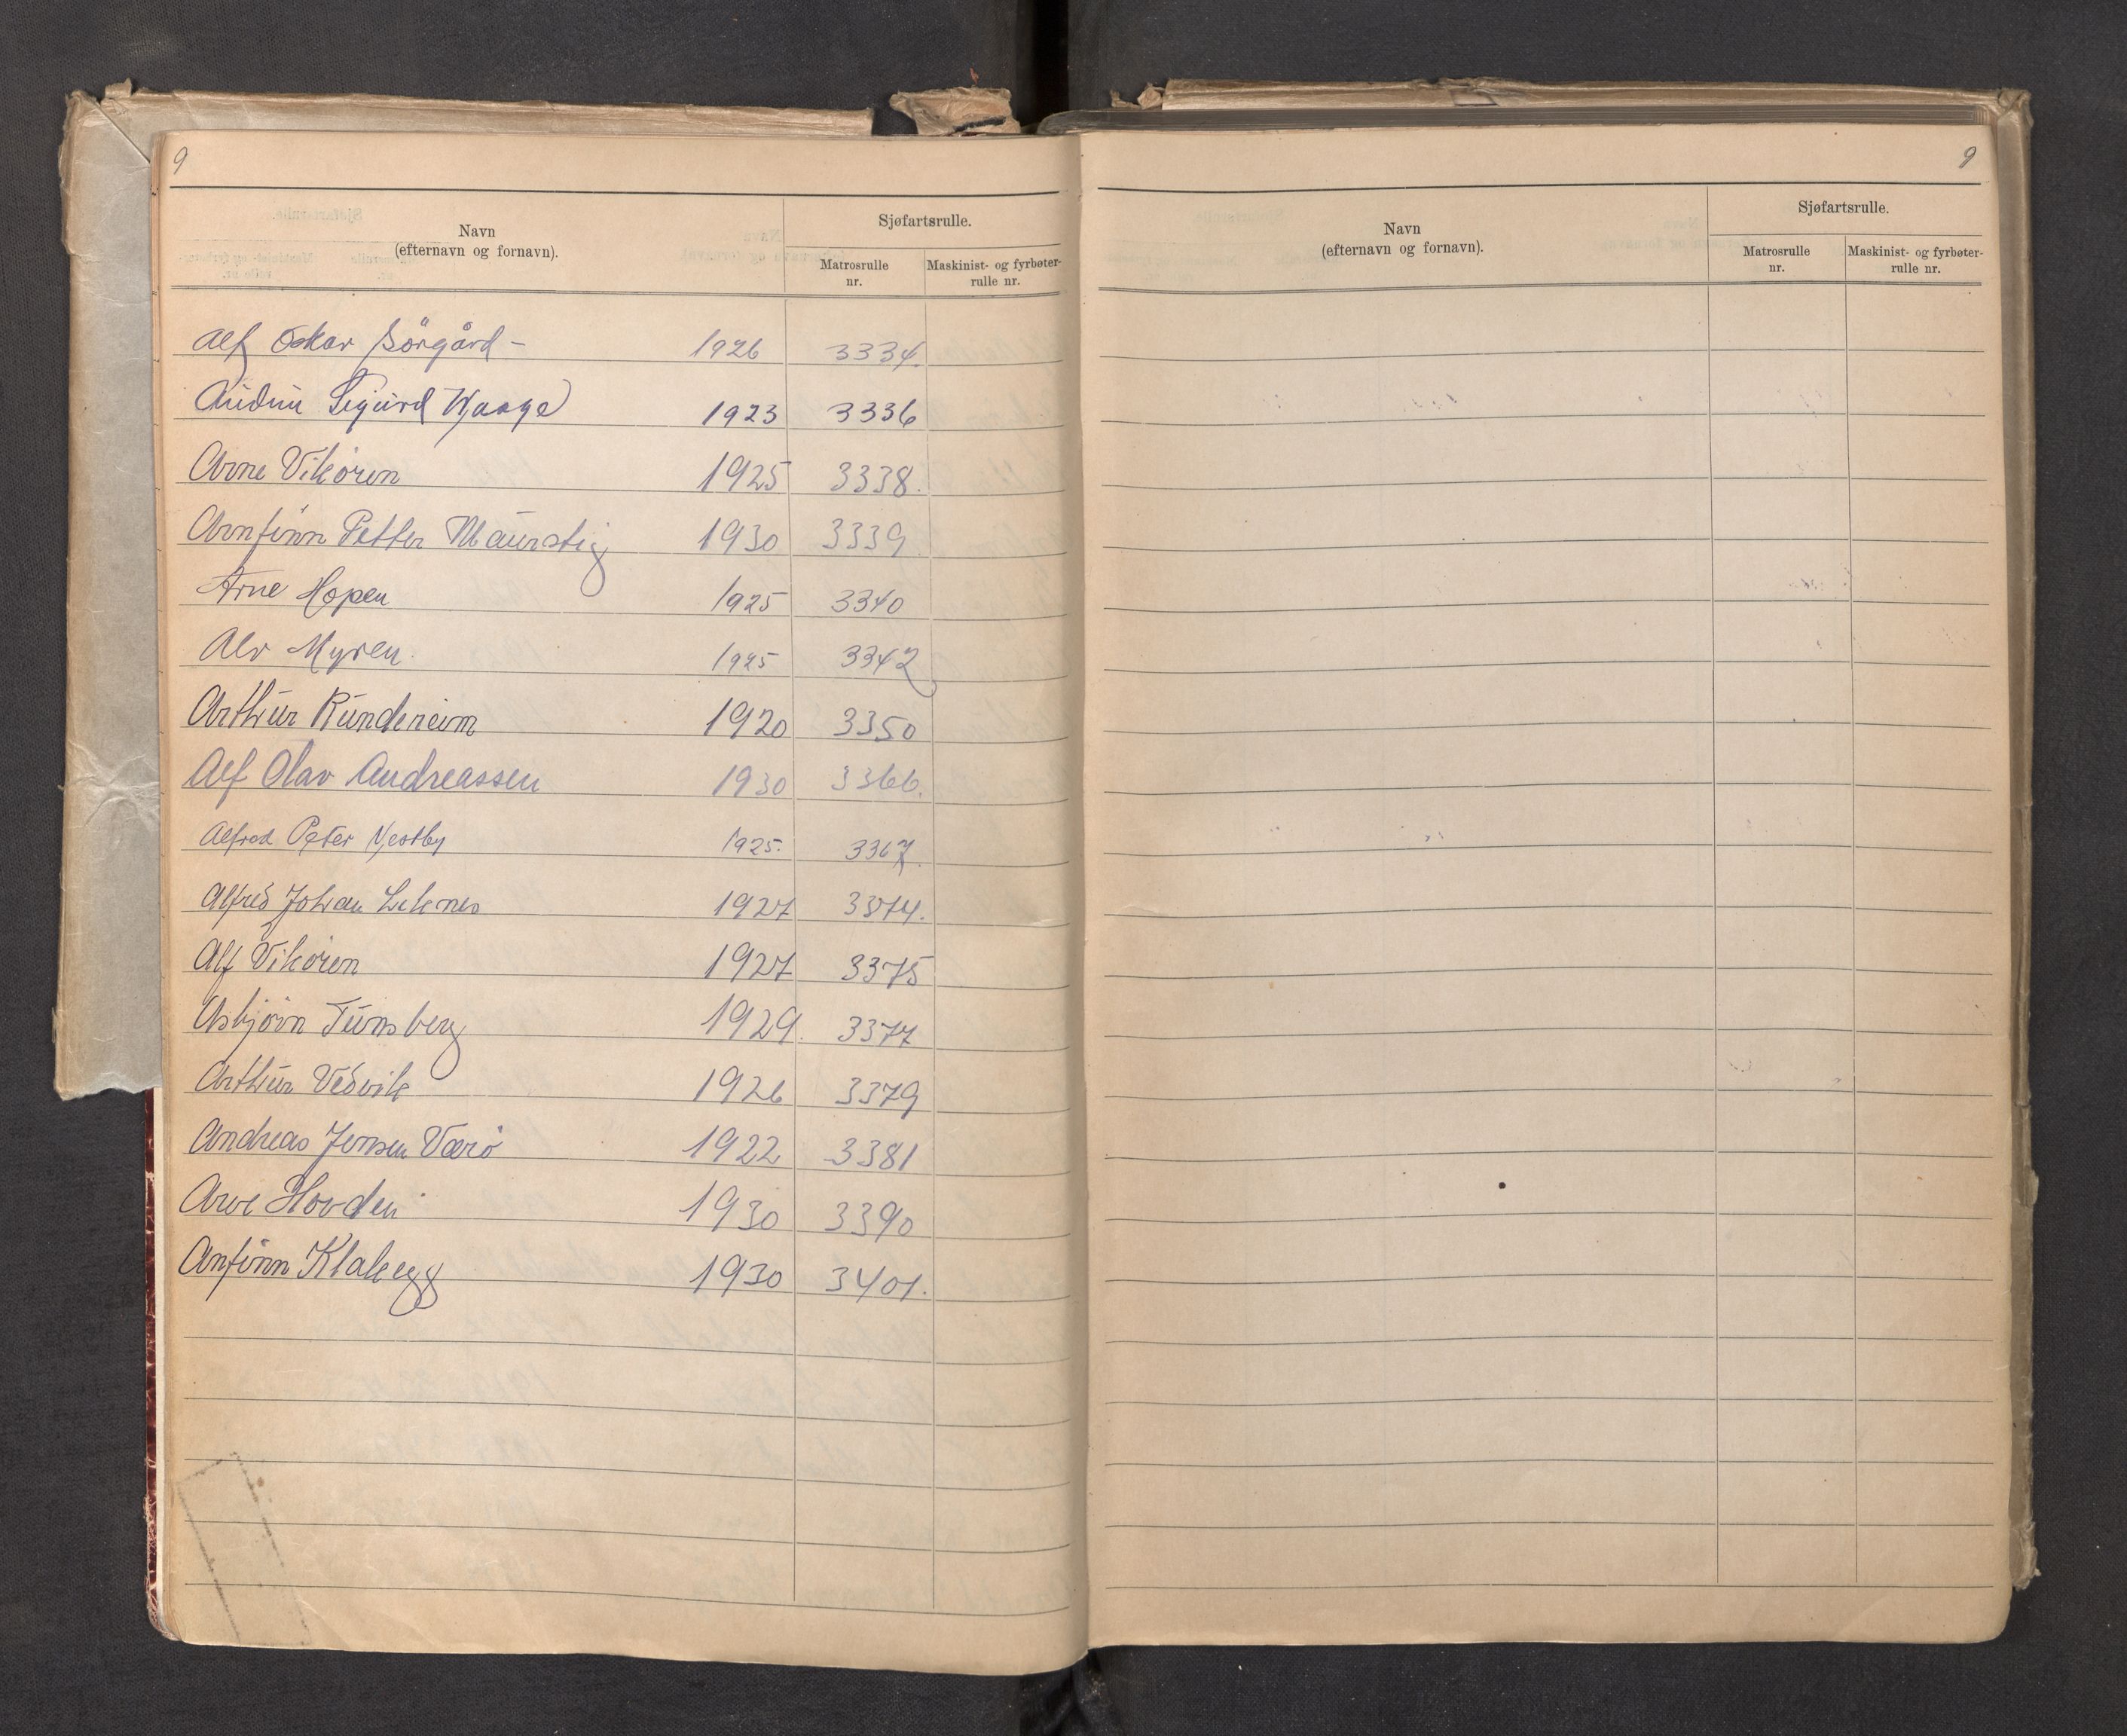 9
Navn
(efternavn og fornavn).
Sjøfartsrulle.
Matrosrulle
nr.
Maskinist- og fyrbøter-
rulle nr.
Alf Oskar Sörgård - 1926 3334.
Audun Sigurd Waage 1923 3336
Arne Vikøren 1925 3338.
Arnfinn Petter Maurstig 1930 3339
Arne Hopen 1925 3340
Alv Myren 1925 3342
Arthur Rundereim 1920 3350
Alf Olav Andreassen 1930 3366.
Alfred Peter Vestby 1925. 3367.
Alfred Johan Leknes 1927 3374.
Alf Vikøren 1927 3375
Asbjørn Tunsberg 1929. 3377
Arthur Vedvik 1926 3379
Andreas Jensen Værö 1922 3381
Arve Hovden 1930 3390
Anfinn Klakegg 1930 3401.
9
Navn
(efternavn og fornavn).
Sjøfartsrulle.
Matrosrulle
nr.
Maskinist- og fyrbøter-
rulle nr.